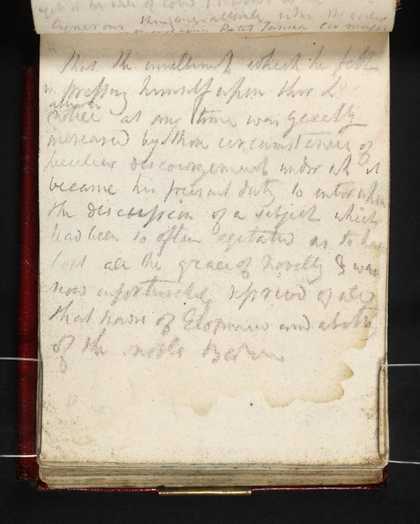 That the unwillingness which he felt
in pressing himself upon their L
notice at any time was greatly
increased by those circumstances of
peculiar discouragement under which it
became his present duty to enter upon
the discussion of a subject which
had been so often agitated as to have
lost all the graces of Novelty & was
now unfortunately deprived of all
that power of Eloquence and ability
of the noble Baron